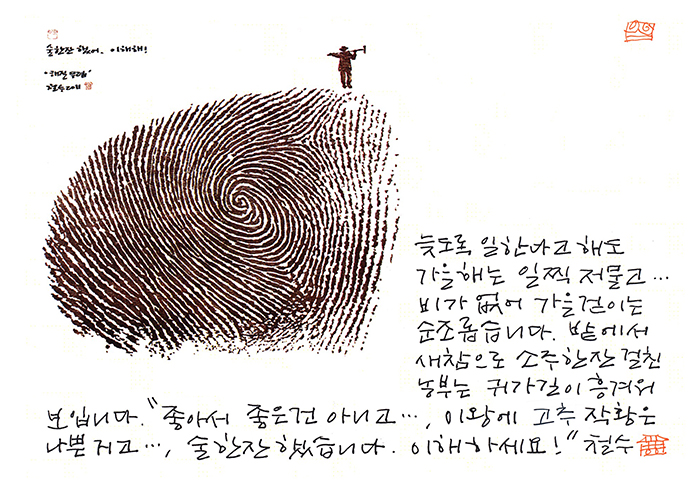 술한잔 했어. 이해해!
"해질 무렵"
철수
늦도록 일한다고 해도
가을해는 일찍 저물고…
비가 없어 가을걷이는
순조롭습니다. 밭에서
새참으로 소주한잔 걸친
농부는 귀가길이 흥겨워
보입니다. "좋아서 좋은건 아니고…, 이왕에 고추 작황은
나쁜거고…, 술한잔 했습니다. 이해하세요!" 철수